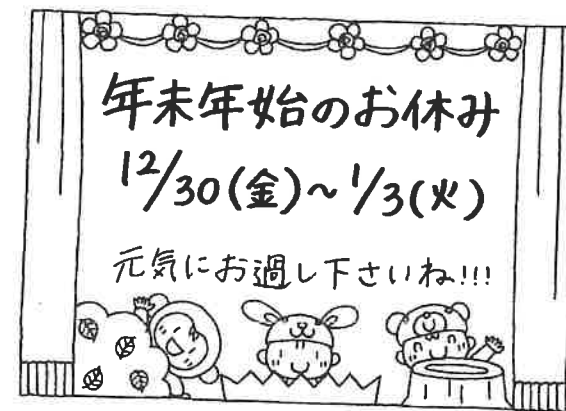 年末年始のお休み
12/30(金)~1/3(火)
元気にお過し下さいね!!!